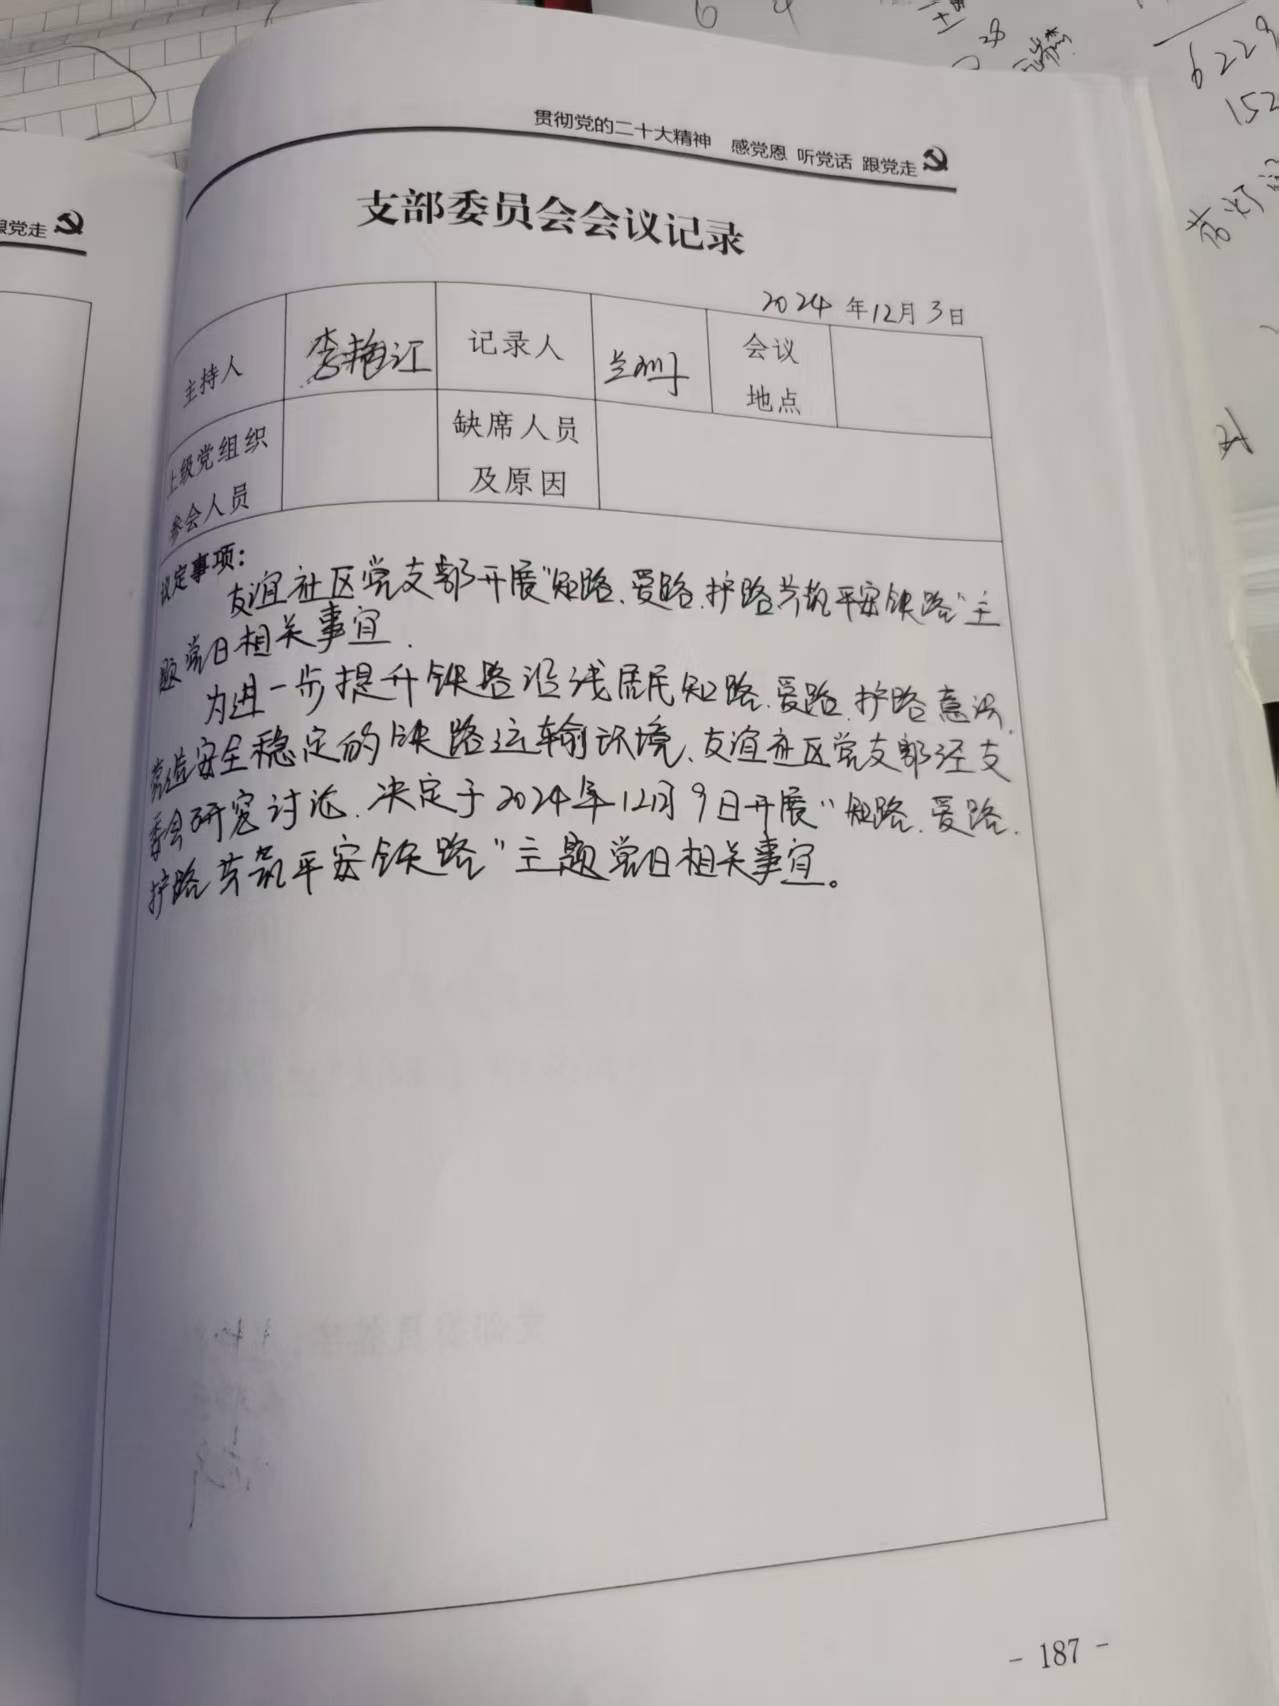 贯彻党的二十大精神 感党恩 听党话 跟党走
跟党走
支部委员会会议记录
2024年12月3日
主持人 李艳江 记录人 会议地点
上级党组织参会人员 缺席人员及原因
议定事项:
友谊社区党支部开展“知路、爱路、护路共筑平安铁路”主
题党日相关事宜.
为进一步提升铁路沿线居民知路、爱路、护路意识,
营造安全稳定的铁路运输环境、友谊社区党支部经支
委会研究讨论、决定于2024年12月9日开展“知路、爱路、
护路共筑平安铁路”主题党日相关事宜。
- 187 -
6229
152